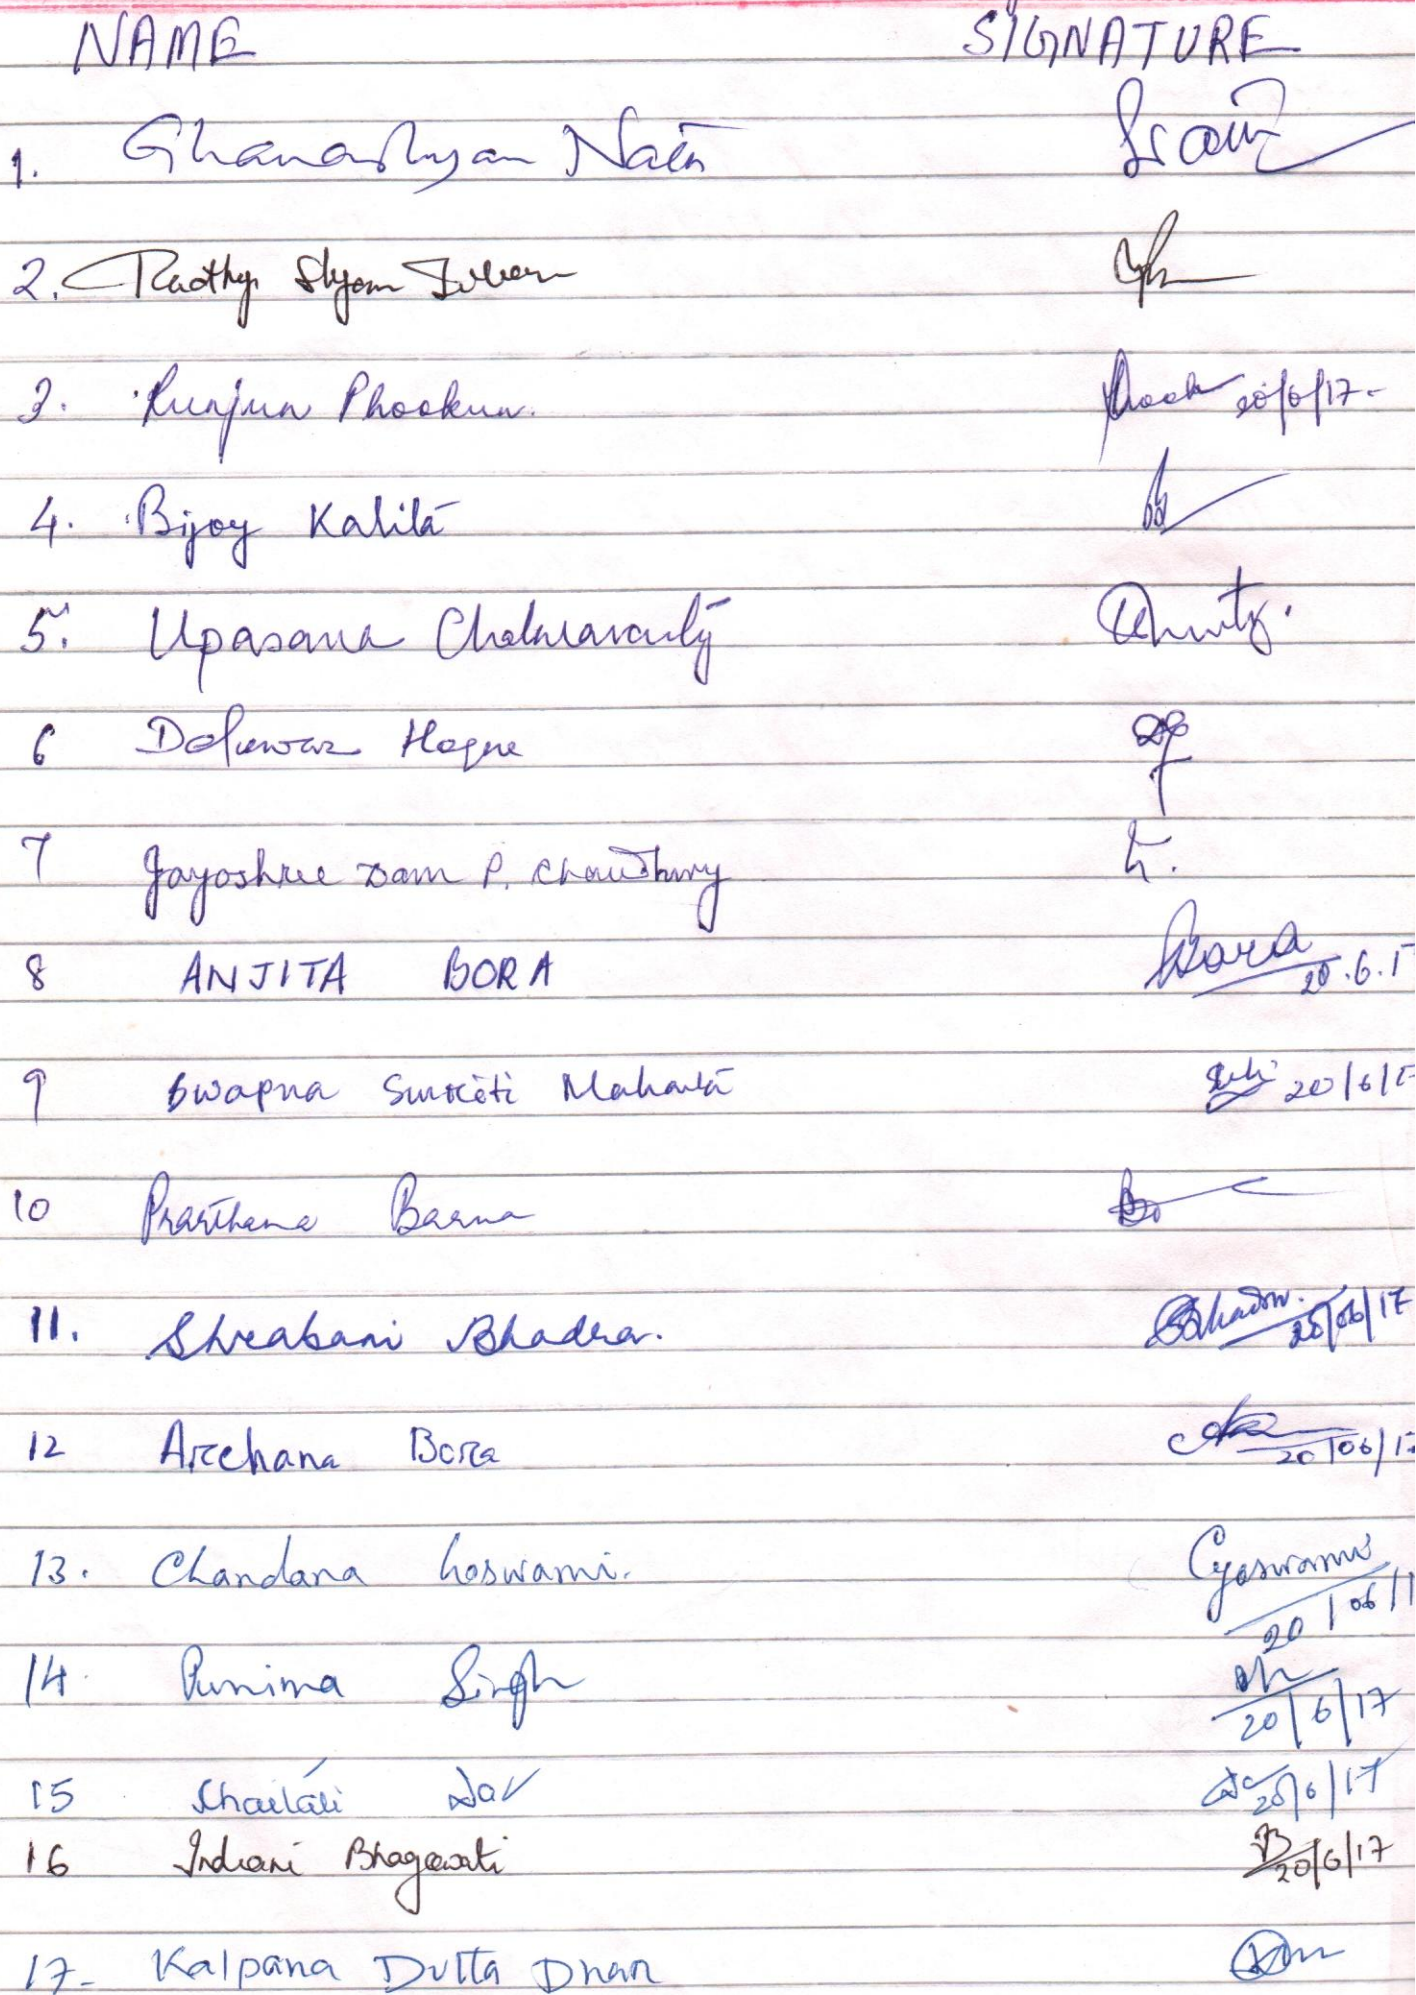 NAME SIGNATURE
1. Ghanashyam Nath
2. Radhy Shyam
3. Runjun Phookun. 20/6/17-
4. Bijoy Kalita
5. Upasana Chakravarty
6 Delowar Hoque
7 Jayoshree Dam P. Choudhury
8 ANJITA BORA Bora
20.6.1
9 Swapna Smriti Mahanta 20/6/1
10 Prarthana Barua
11. Shrabani Bhadra. Bhadra.
20/06/17
12 Archana Bora
20/06/1
13. Chandana Goswami. CGoswami
20/06/1
14. Purnima Singh
20/6/17
15 20/6/17
16 Indrani Bhagawati 20/6/17
17- Kalpana Dutta